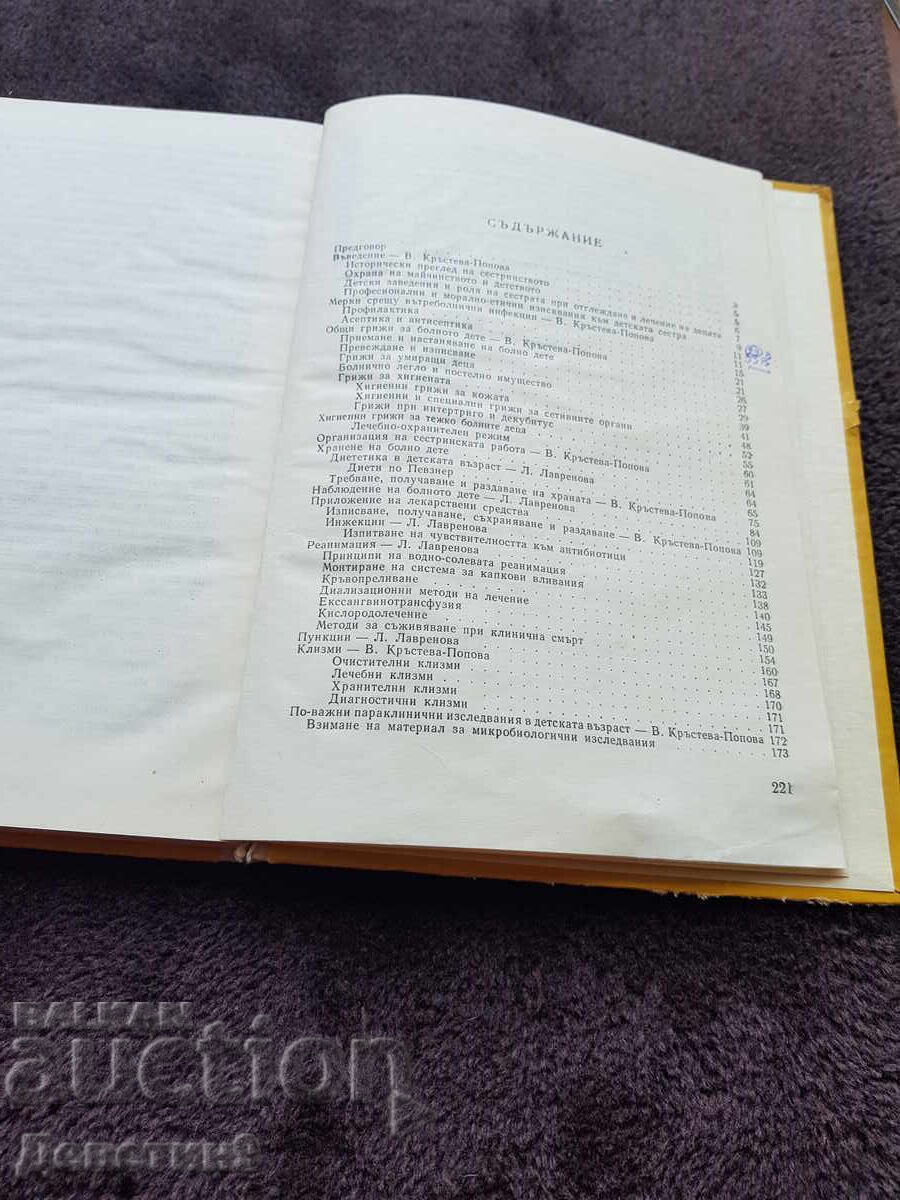 СЪДЪРЖАНИЕ
Предговор
Въведение — В. Кръстева-Попова
Исторически преглед на сестринството
Охрана на майчинството и детството
Детски заведения и роля на сестрата при отглеждане и лечение на децата
Професионални и морално-етични изисквания към детската сестра
Мерки срещу вътреболнични инфекции — В. Кръстева-Попова
Профилактика
Асептика и антисептика
Общи грижи за болното дете — В. Кръстева-Попова
Приемане и настаняване на болно дете
Превеждане и изписване
Грижи за умиращи деца
Болнично легло и постелно имущество
Грижи за хигиената
Хигиенни грижи за кожата
Хигиенни и специални грижи за сетивните органи
Грижи при интертриго и декубитус
Хигиенни грижи за тежко болните деца
Лечебно-охранителен режим
Организация на сестринската работа — В. Кръстева-Попова
Хранене на болно дете
Диететика в детската възраст — Л. Лавренова
Диети по Певзнер
Требване, получаване и раздаване на храната — В. Кръстева-Попова
Наблюдение на болното дете — Л. Лавренова
Приложение на лекарствени средства
Изписване, получаване, съхраняване и раздаване — В. Кръстева-Попова
Инжекции — Л. Лавренова
Изпитване на чувствителността към антибиотици
Реанимация — Л. Лавренова
Принципи на водно-солевата реанимация
Монтиране на система за капкови вливания
Кръвопреливане
Диализационни методи на лечение
Ексангвинотрансфузия
Кислородолечение
Методи за съживяване при клинична смърт
Пункции — Л. Лавренова
Клизми — В. Кръстева-Попова
Очистителни клизми
Лечебни клизми
Хранителни клизми
Диагностични клизми 171
По-важни параклинични изследвания в детската възраст — В. Кръстева-Попова 172
Взимане на материал за микробиологични изследвания 173
221
BALKAN
auction